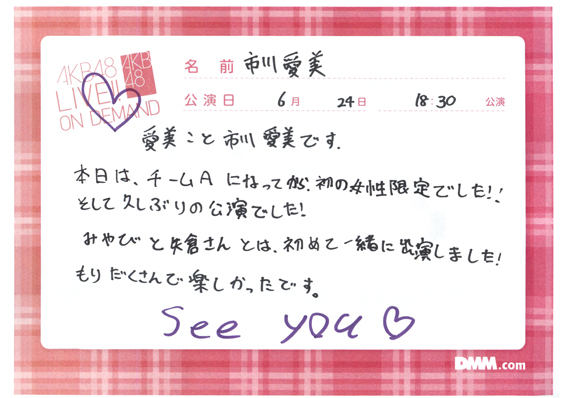 AKB48
LIVE!!
ON DEMAND
AKB
48
名前 市川愛美
公演日 6月 24日 18:30 公演
愛美こと市川愛美です.
本日は、チームAになってから、初の女性限定でした!!
そして久しぶりの公演でした!
みやびと矢倉さんとは、初めて一緒に出演しました!
もりだくさんで楽しかったです。
See you♡
DMM.com